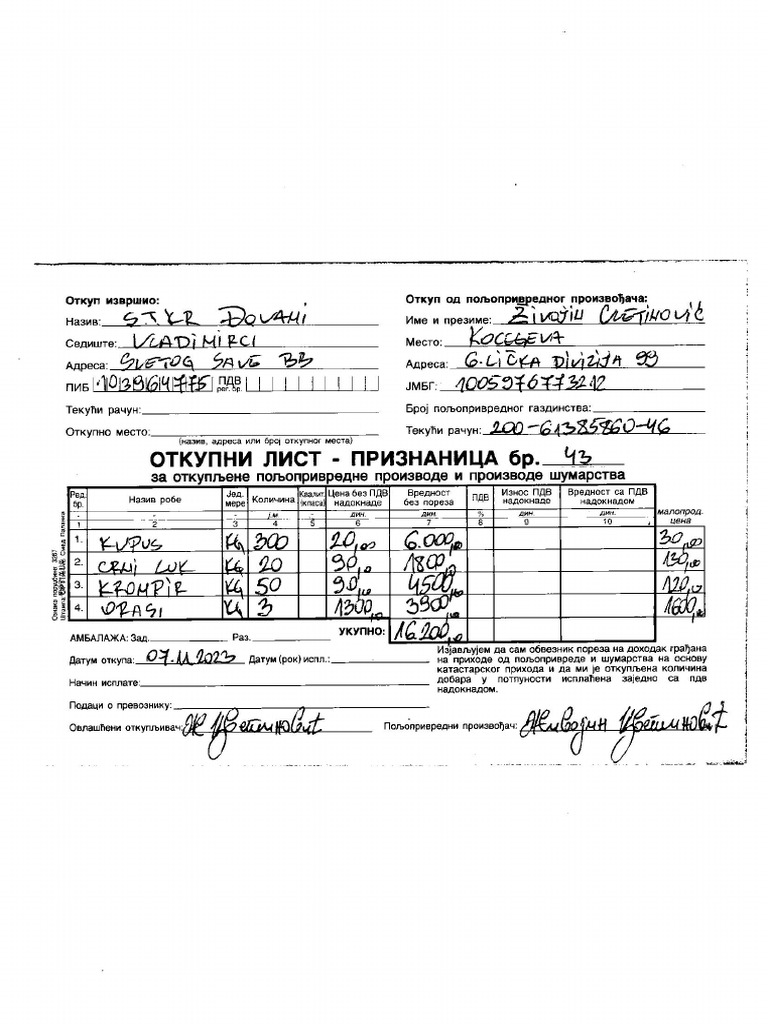 Откуп извршио:
Назив: S.T.K.R
Седиште: VLADIMIRCI
Адреса: SVETOG SAVE BB
ПИБ 103964775 ПДВ рег. бр.
Текући рачун:
Откупно место:
(назив, адреса или број откупног места)
Откуп од пољопривредног произвођача:
Име и презиме: Živojin Cvetinović
Место: KOCELJEVA
Адреса: 6. LIČKA DIVIZIJA 99
ЈМБГ: 1005976773212
Број пољопривредног газдинства:
Текући рачун: 200-61385860-46
ОТКУПНИ ЛИСТ - ПРИЗНАНИЦА бр. 43
за откупљене пољопривредне производе и производе шумарства
Ред. бр. Назив робе Јед. мере Количина Квалит. (класа) Цена без ПДВ надокнаде Вредност без пореза ПДВ Износ ПДВ надокнаде Вредност са ПДВ надокнадом малопрод. цена
- - - ј.м - дин. дин. % дин. дин.
1 2 3 4 5 6 7 8 9 10
1. KUPUS KG 300 20,00 6.000,00 30,00
2. CRNI LUK KG 20 90,00 1800,00 130,00
3. KROMPIR KG 50 90,00 4500,00 120,00
4. ORASI KG 3 1300,00 3900,00 1600,00
АМБАЛАЖА: Зад. Раз. УКУПНО: 16.200,00
Датум откупа: 07.11.2023 Датум (рок) испл.:
Начин исплате:
Подаци о превознику:
Изјављујем да сам обвезник пореза на доходак грађана
на приходе од пољопривреде и шумарства на основу
катастарског прихода и да ми је откупљена количина
добара у потпуности исплаћена заједно са пдв
надокнадом.
Овлашћени откупљивач: Ж Цветиновић Пољопривредни произвођач: Живојин Цветиновић